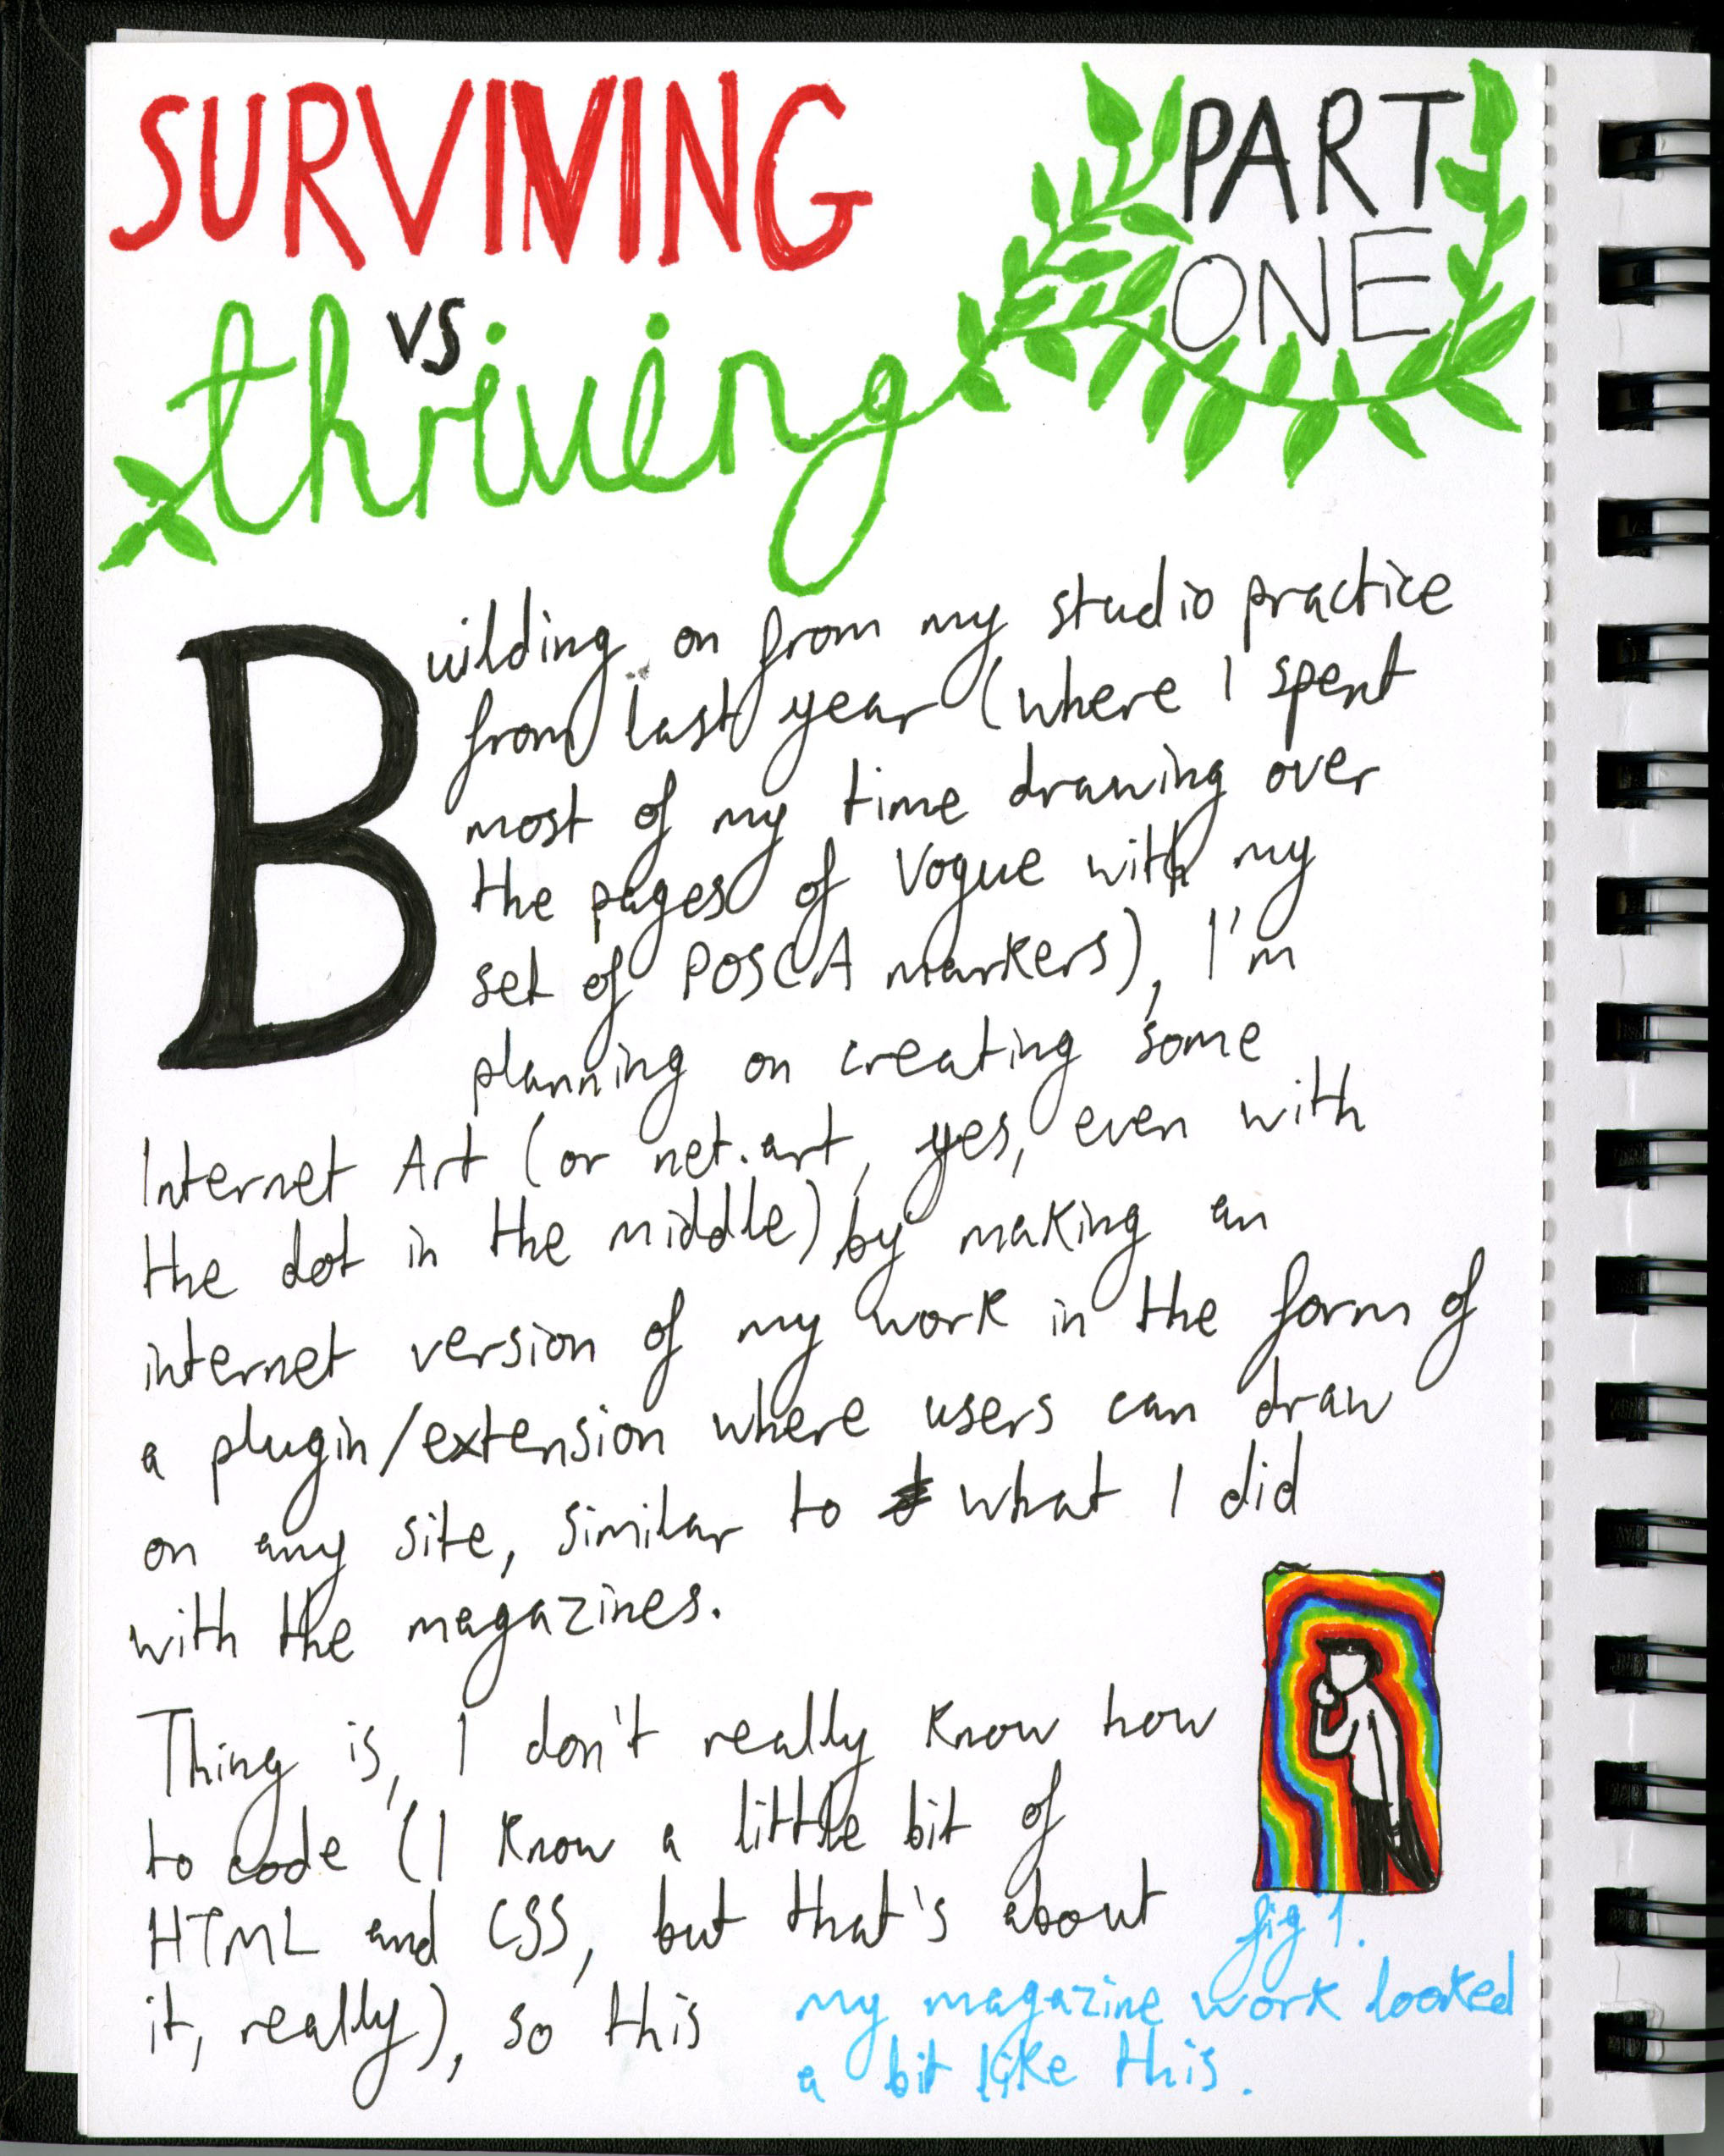 SURVIVING
vs
thriving
PART
ONE
Building on from my studio practice
from last year (where I spent
most of my time drawing over
the pages of Vogue with my
set of POSCA markers), I'm
planning on creating some
Internet Art (or net.art, yes, even with
the dot in the middle) by making an
internet version of my work in the form of
a plugin/extension where users can draw
on any site, similar to what I did
with the magazines.
Thing is, I don't really know how
to code (I know a little bit of
HTML and CSS, but that's about
it, really), so this
fig 1.
my magazine work looked
a bit like this.